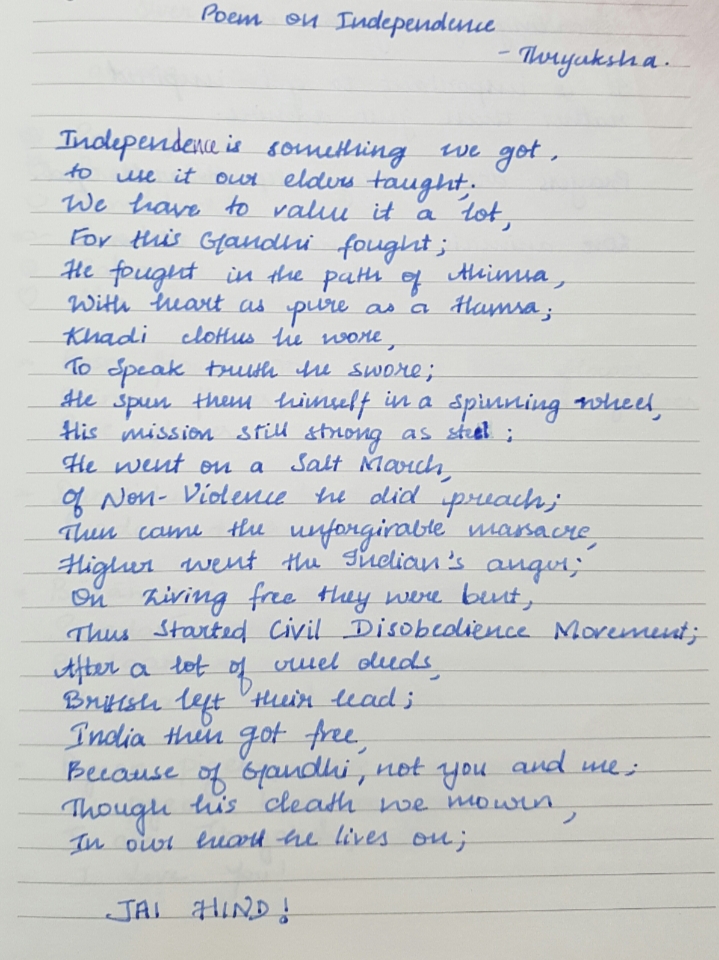 Poem on Independence
- Thryaksha.
Independence is something we got,
to use it our elders taught;
We have to value it a lot,
For this Gandhi fought;
He fought in the path of Ahimsa,
With heart as pure as a Hamsa;
Khadi clothes he wore,
To speak truth he swore;
He spun them himself in a spinning wheel,
His mission still strong as steel;
He went on a Salt March,
Of Non-Violence he did preach;
Then came the unforgivable massacre,
Higher went the Indian's anger;
On Living free they were bent,
Thus Started Civil Disobedience Movement;
After a lot of cruel deeds,
British left their lead;
India then got free,
Because of Gandhi, not you and me;
Though his death we mourn,
In our heart he lives on;
JAI HIND!